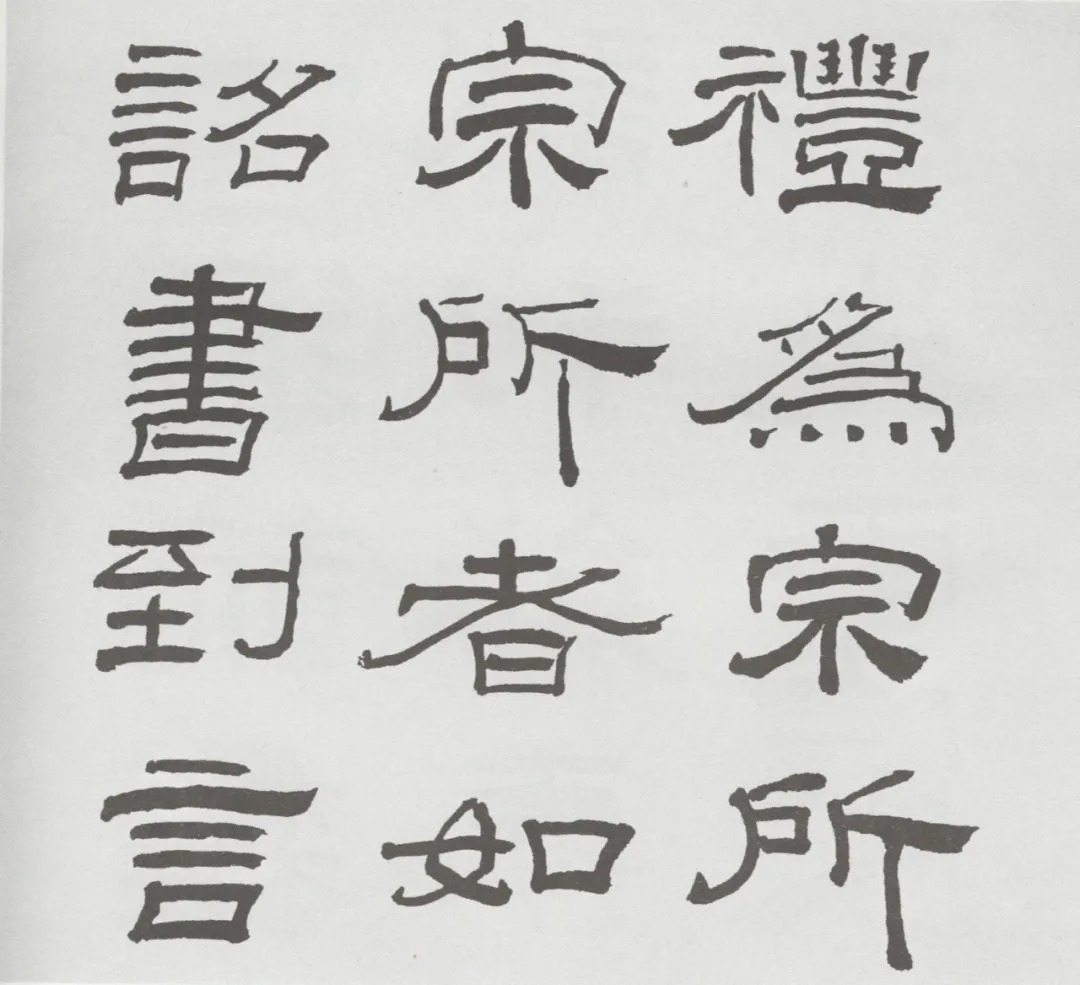 禮爲宗所
宗所者如
詔書到言